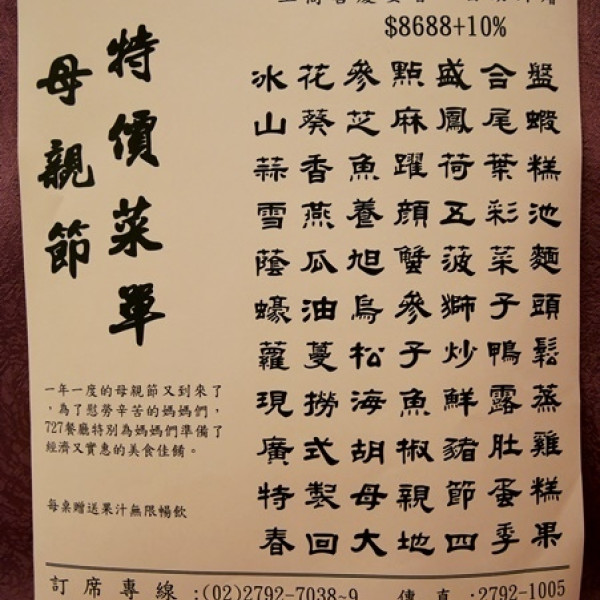 $8688+10%
母親節
特價菜單
冰花參點盛合盤
山葵芝麻鳳尾蝦
蒜香魚躍荷葉糕
雪燕養顏五彩池
蔭瓜旭蟹菠菜麵
蠔油烏參獅子頭
蘿蔓松子炒鴨鬆
現撈海魚鮮露蒸
廣式胡椒豬肚雞
特製母親節蛋糕
春回大地四季果
一年一度的母親節又到來了
，為了慰勞辛苦的媽媽們，
727餐廳特別為媽媽們準備了
經濟又實惠的美食佳餚。
每桌贈送果汁無限暢飲
訂席專線:(02)2792-7038~9 傳真:2792-1005